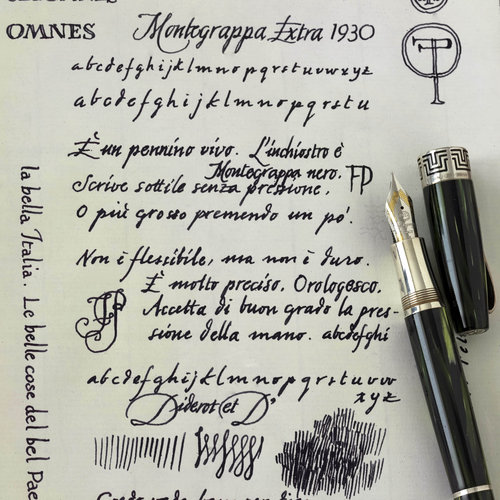 OMNES
Montegrappa Extra 1930
abcdefghijklmnopqrstuvwxyz
abcdefghijklmnopqrstu
È un pennino vivo. L'inchiostro è
Montegrappa nero.
Scrive sottile senza pressione,
FP
O più grosso premendo un po'.
Non è flessibile, ma non è duro.
È molto preciso. Orologesco.
Accetta di buon grado la pres-
sione della mano. abcdefghi
abcdefghijklmnopqrstuvw
xyz
Diderot et D'
la bella Italia. Le belle cose del bel Pae